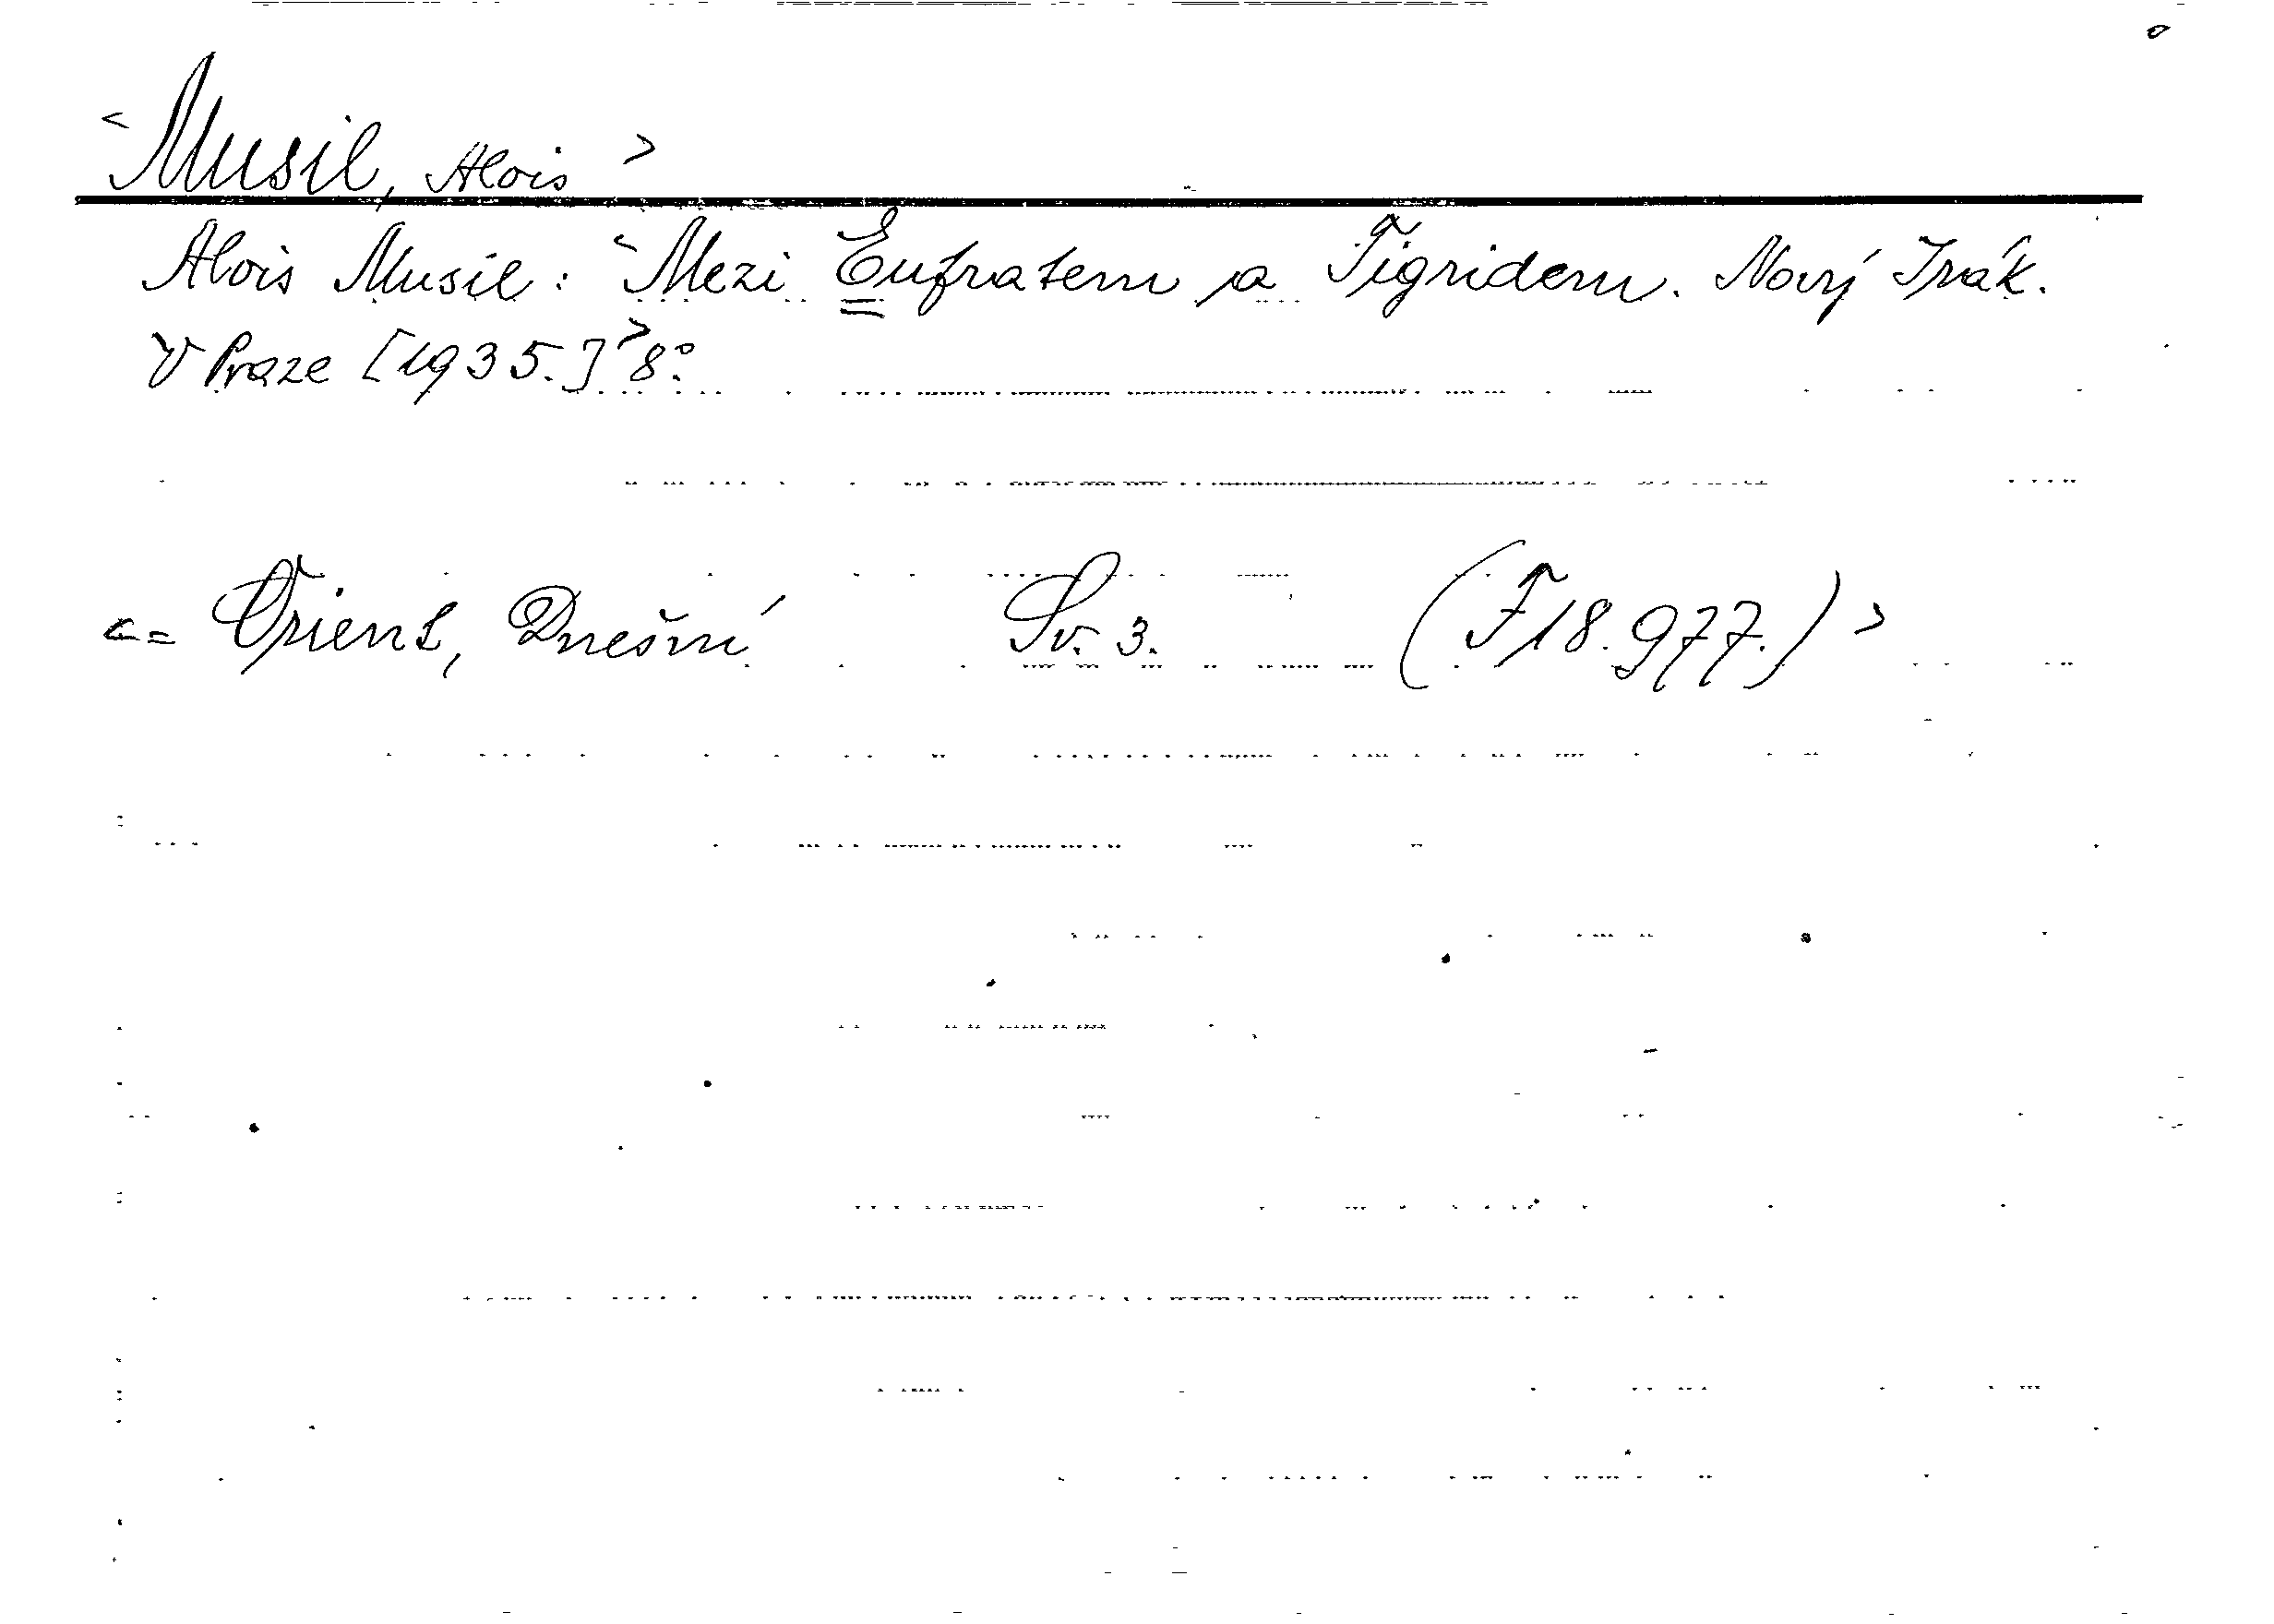 <Musil, Alois>
Alois Musil: <Mezi Eufratem a Tigridem. Nový Irák.
V Praze [1935.]> 8°.
<= Orient, Dnešní Sv. 3. (F 18.977.)>